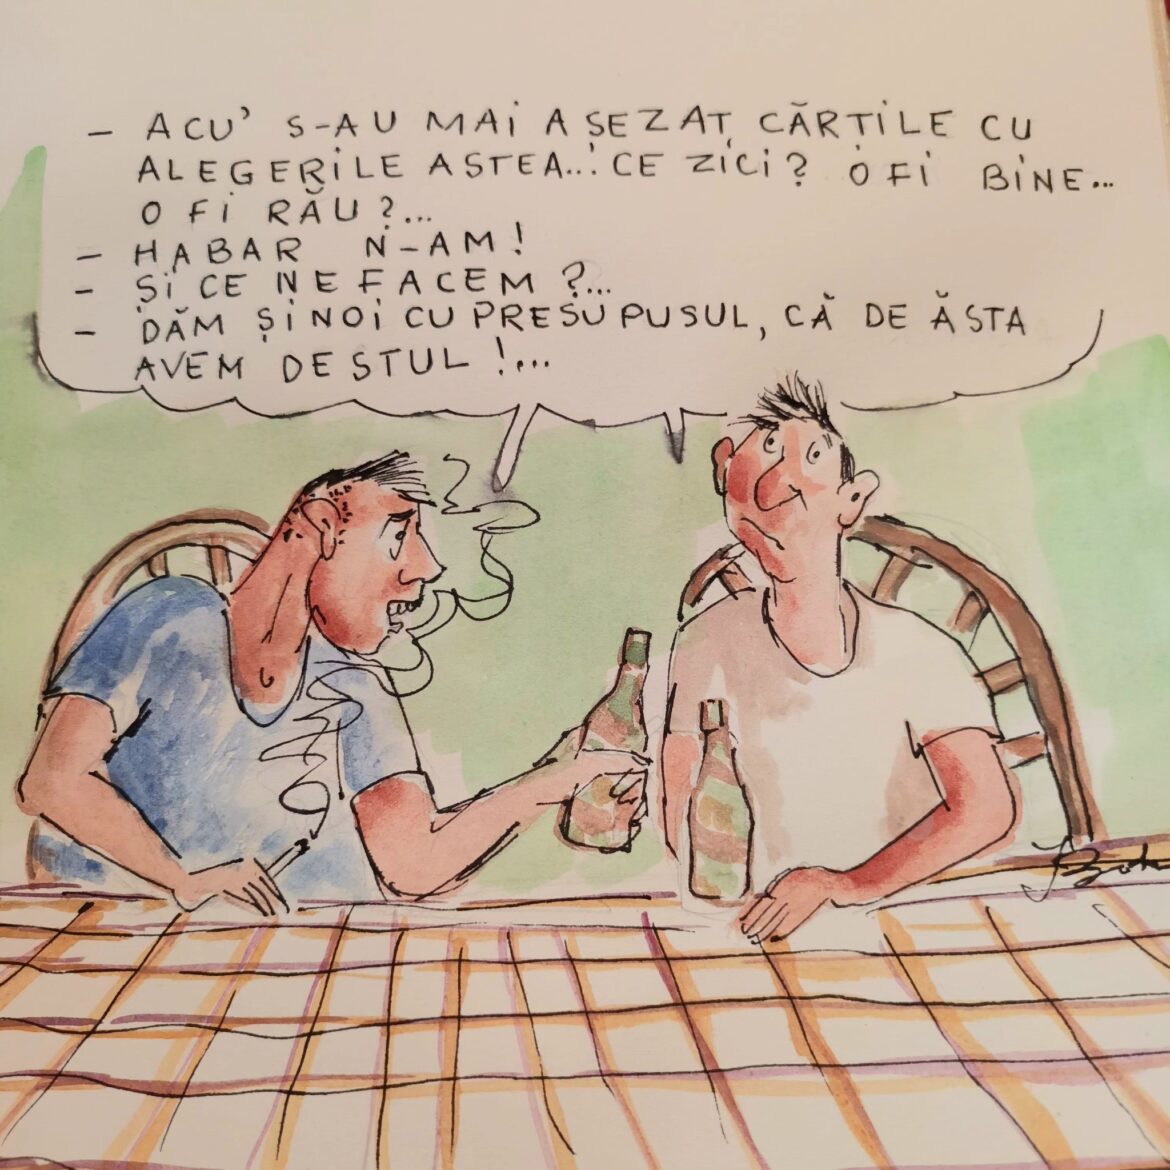 - ACU' S-AU MAI AȘEZAT CĂRȚILE CU
ALEGERILE ASTEA...! CE ZICI? O FI BINE...
O FI RĂU?...
- HABAR N-AM!
- ȘI CE NE FACEM?...
- DĂM ȘI NOI CU PRESUPUSUL, CĂ DE ĂSTA
AVEM DESTUL!...